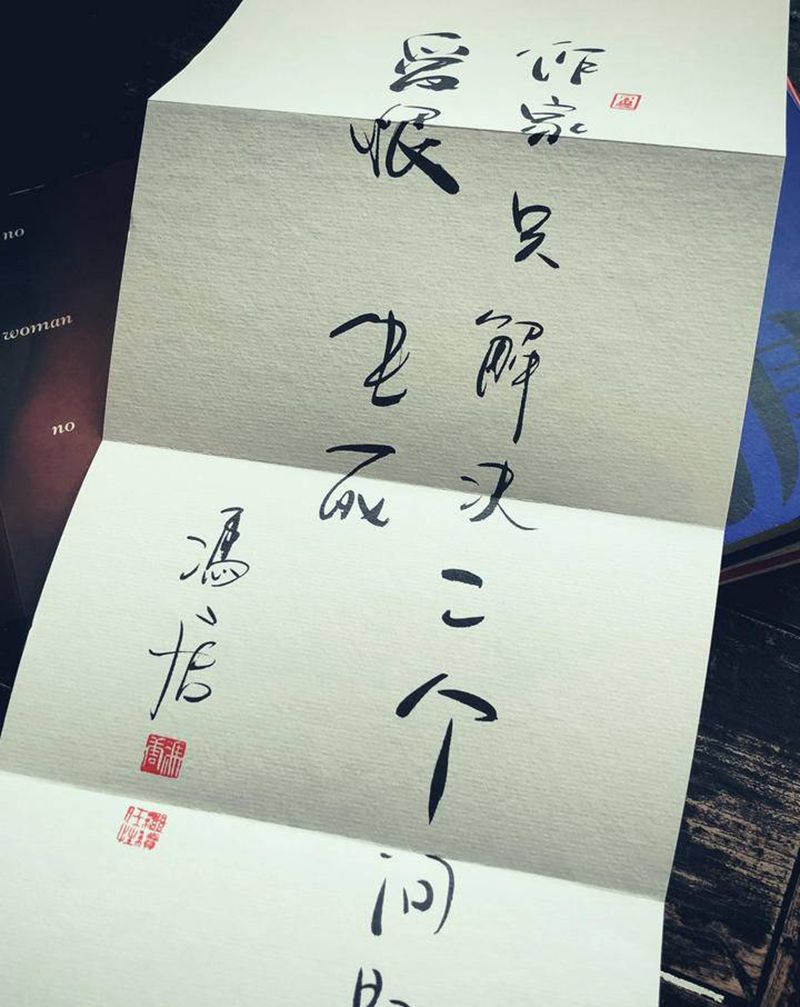 作家只解决二个问
爱恨 生死
馮唐
no
woman
no